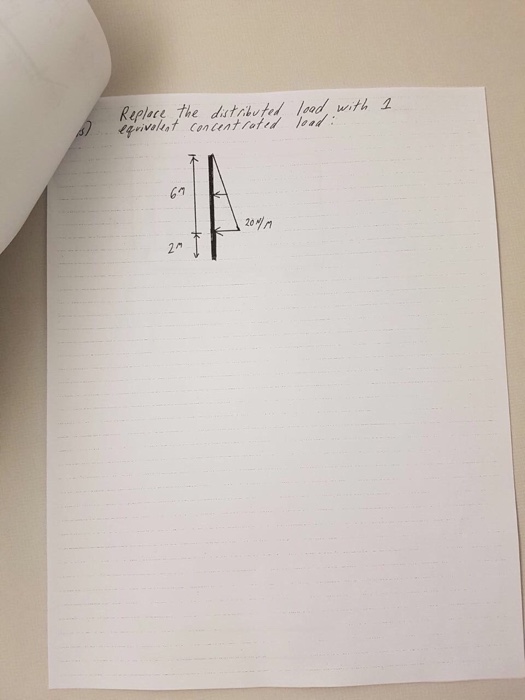 Replace the distributed load with 1
5) equivalent concentrated load:
6m
20 N/m
2m